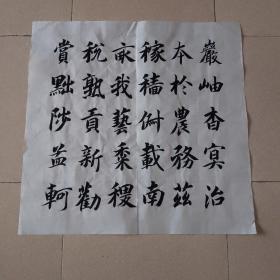 巖岫杳冥治
本於農務茲
稼穡俶載南
畝我藝黍稷
稅熟貢新勸
賞黜陟孟軻